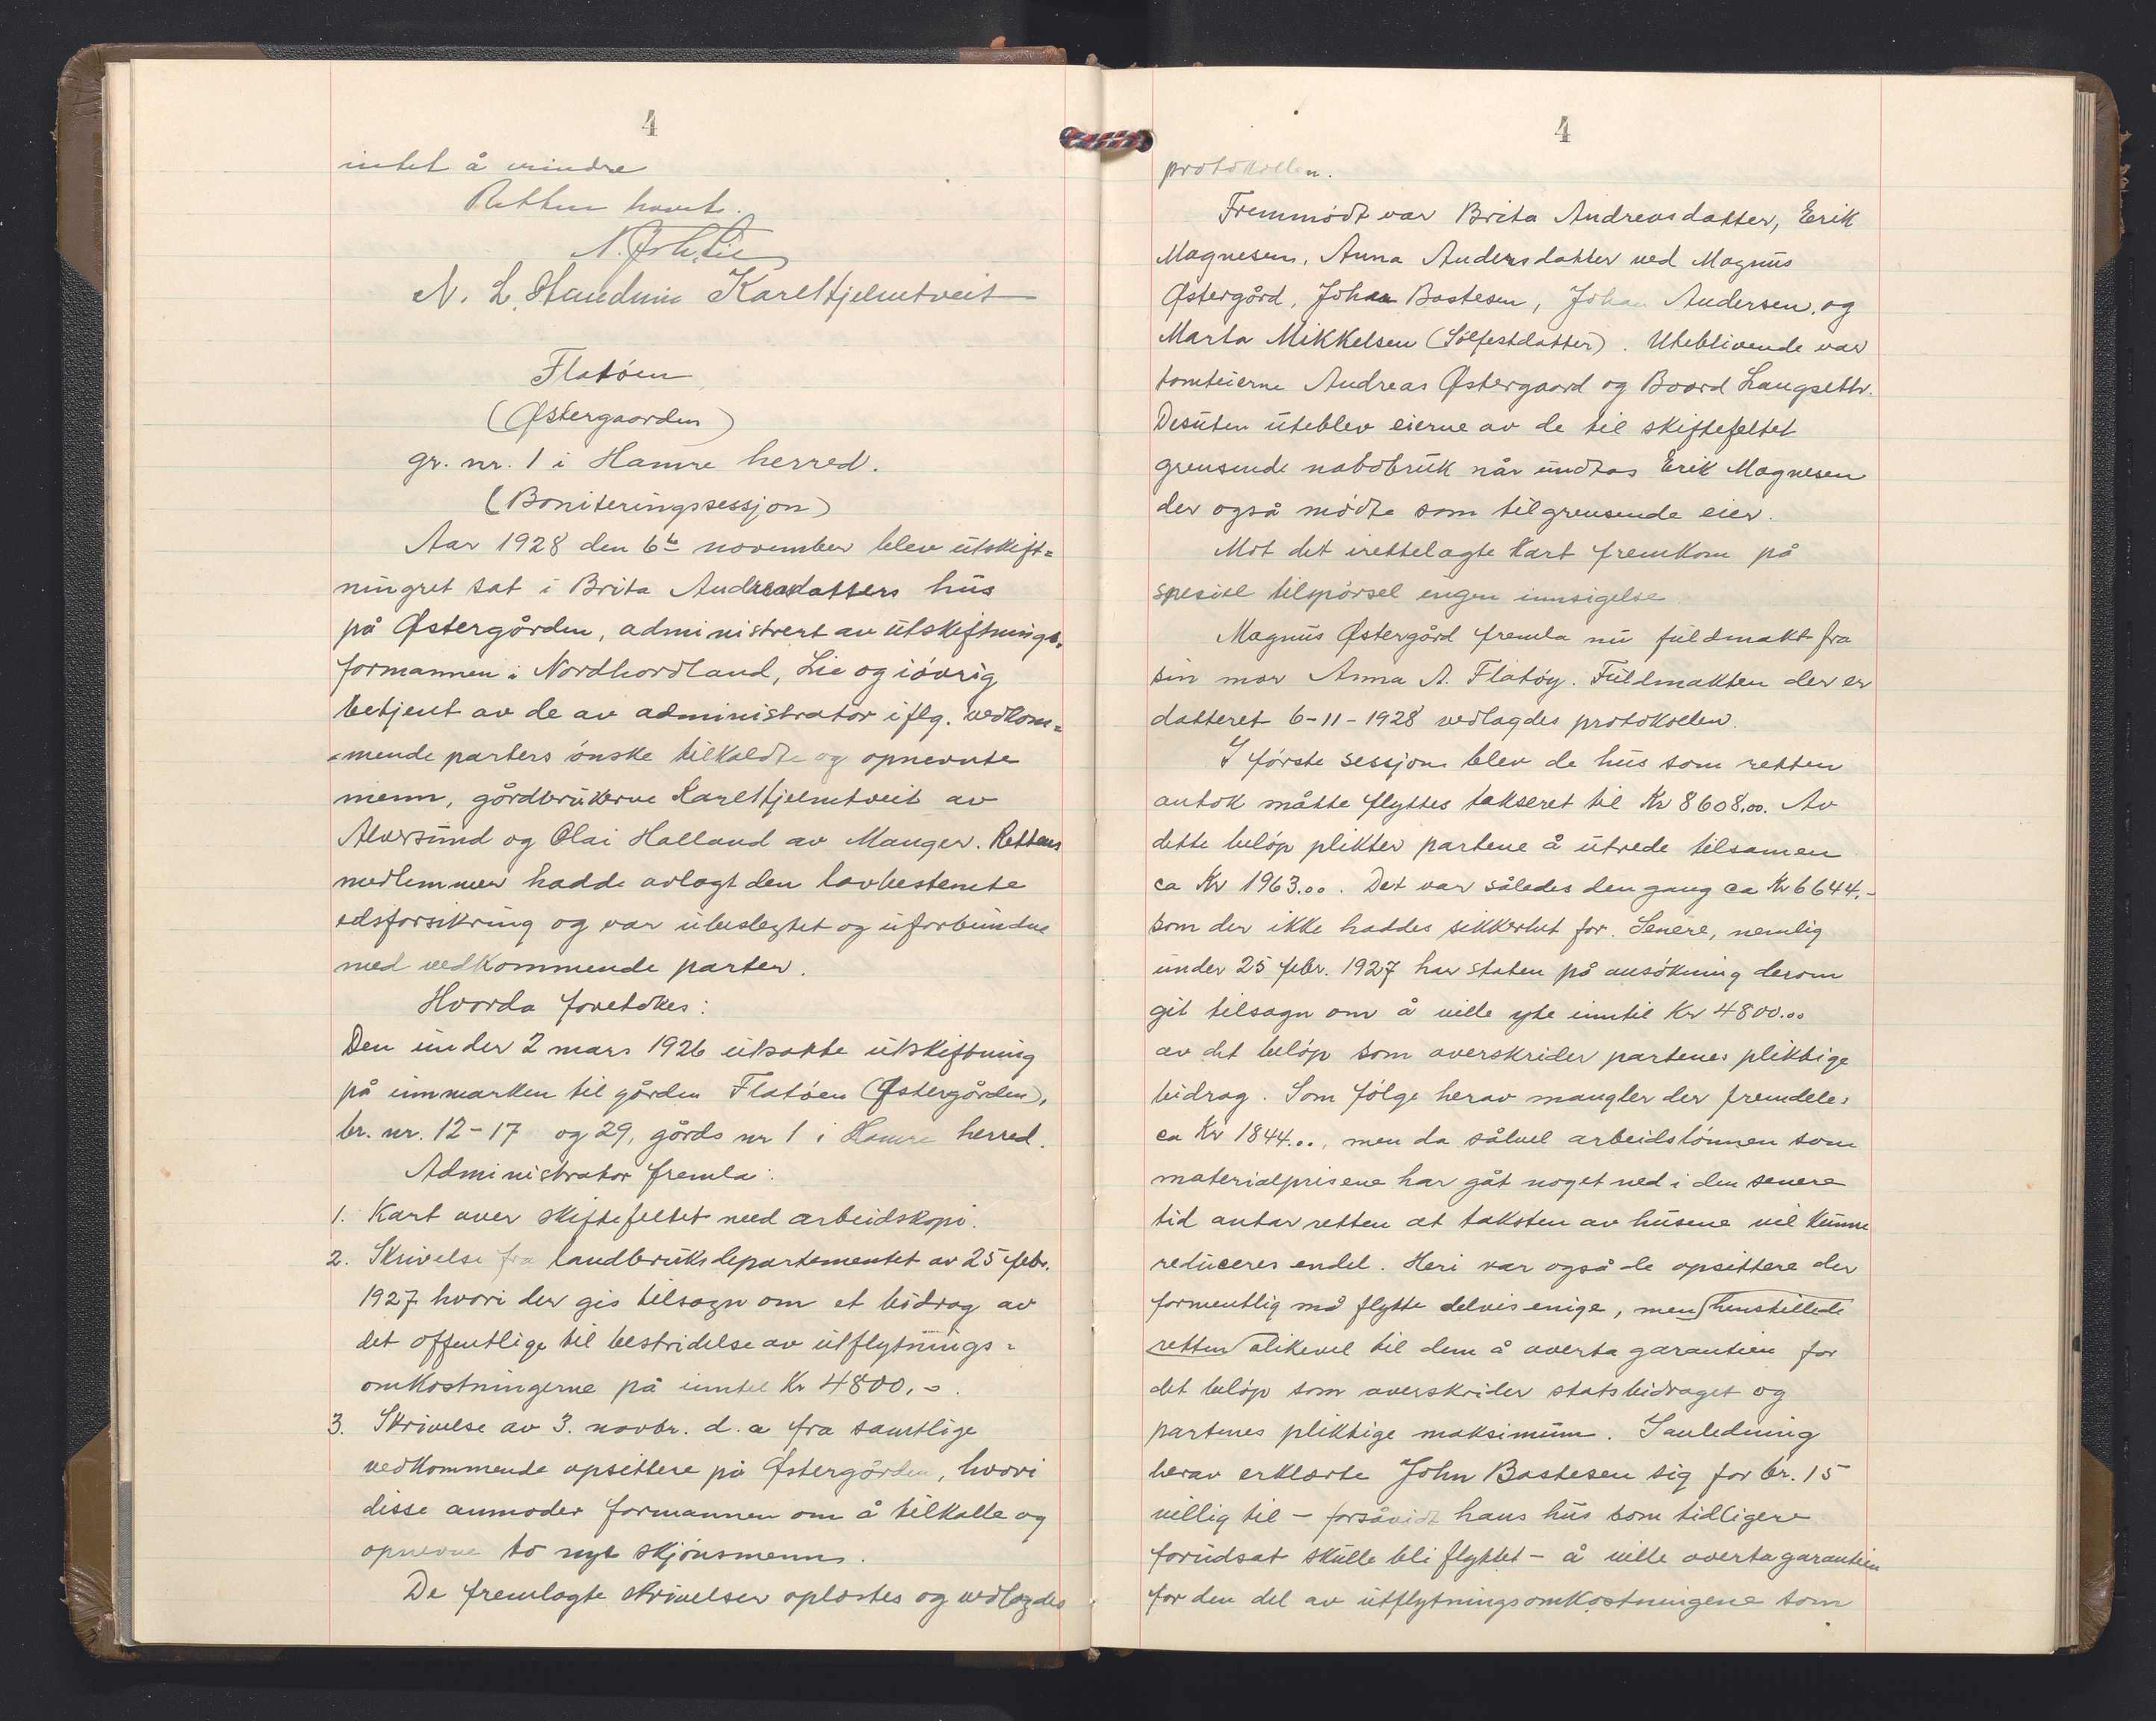 4
intet å mindre
Retten hævet.
N. Joh. Lie
N. L. Karl Hjelmtveit
Flatöen
(Østergaarden)
gr. nr. 1 i Hamre herred.
(Boniteringssessjon)
Aar 1928 den 6te november blev utskift=
ningret sat i Brita Andreasdatters hus
på Østergården, administrert av utskiftnings-
formannen i Nordhordland, Lie og iövrig
betjent av de av administrator iflg. vedkom=
=mende parters önske tilkaldte og opnevnte
menn, gårdbrukerne Karl Hjelmtveit av
Alversund og Olai Halland av Manger. Rettens
medlemmer hadde avlagt den lovbestemte
edsforsikring og var ubeslegtet og uforbundne
med vedkommende parter.
Hvorda foretokes:
Den under 2 mars 1926 utsatte utskiftning
på innmarken til gården Flatöen (Østergården),
br. nr. 12-17 og 29, gårds nr 1 i Hamre herred.
Administrator fremla:
1. Kart over skiftefeltet med arbeidskopi.
2. Skrivelse fra landbruksdepartementet av 25 febr.
1927 hvori der gis tilsagn om et bidrag av
det offentlige til bestridelse av utflytnings=
omkostningerne på inntil Kr 4800,-.
3. Skrivelse av 3. novbr. d.a fra samtlige
vedkommende opsittere på Østergården, hvori
disse anmoder formannen om å tilkalle og
opnevne to nye skjönsmenn.
De fremlagte skrivelser oplæstes og vedlagdes
4
protokollen.
Fremmödt var Brita Andreasdatter, Erik
Magnesen, Anna Andersdatter ved Magnus
Østergård, Johan Bastesen, Johan Andersen, og
Marta Mikkelsen (Sölfestdatter). Uteblivende var
tomteierne Andreas Østergaard og Baard Langseth.
Desuten uteblev eierne av de til skiftefeltet
grensende nabobruk når undtas Erik Magnesen
der også mödte som tilgrensende eier.
Mot det irettelagte kart fremkom på
spesiel tilspörsel engen innsigelse.
Magnus Østergård fremla nu fuldmakt fra
sin mor Anna A. Flatöy. Fuldmakten der er
datteret 6-11-1928 vedlagdes protokollen.
I förste sessjon blev de hus som retten
antok måtte flyttes takseret til Kr 8608.00. Av
dette belöp plikter partene å utrede tilsamen
ca Kr 1963.00. Det var således den gang ca Kr 6644,-
som der ikke haddes sikkerhet for. Senere, nemlig
under 25 febr. 1927 har staten på ansökning derom
git tilsagn om å ville yte inntil Kr 4800.00
av det belöp som overskrider partenes pliktige
bidrag. Som fölge herav mangler der fremdeles
ca Kr 1844.00, men da såvel arbeidslönnen som
materialprisene har gåt noget ned i den senere
tid antar retten at taksten av husene vil kunne
reduceres endel. Heri var også de opsittere der
formentlig må flytte delvis enige, men henstillede
retten alikevel til dem å overta garantien for
det belöp som overskrider statsbidraget og
partenes pliktige maksimum. I anledning
herav erklærte John Bastesen sig for br. 15
villig til - forsåvidt hans hus som tidligere
forudsat skulle bli flyttet - å ville overta garantien
for den del av utflytningsomkostningene som